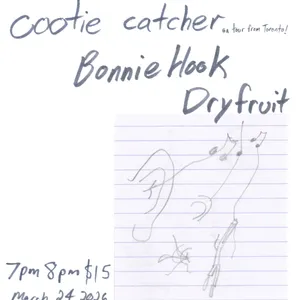 cootie catcher on tour from Toronto!
Bonnie Hook
Dryfruit
7pm 8pm $15
March 24 2026